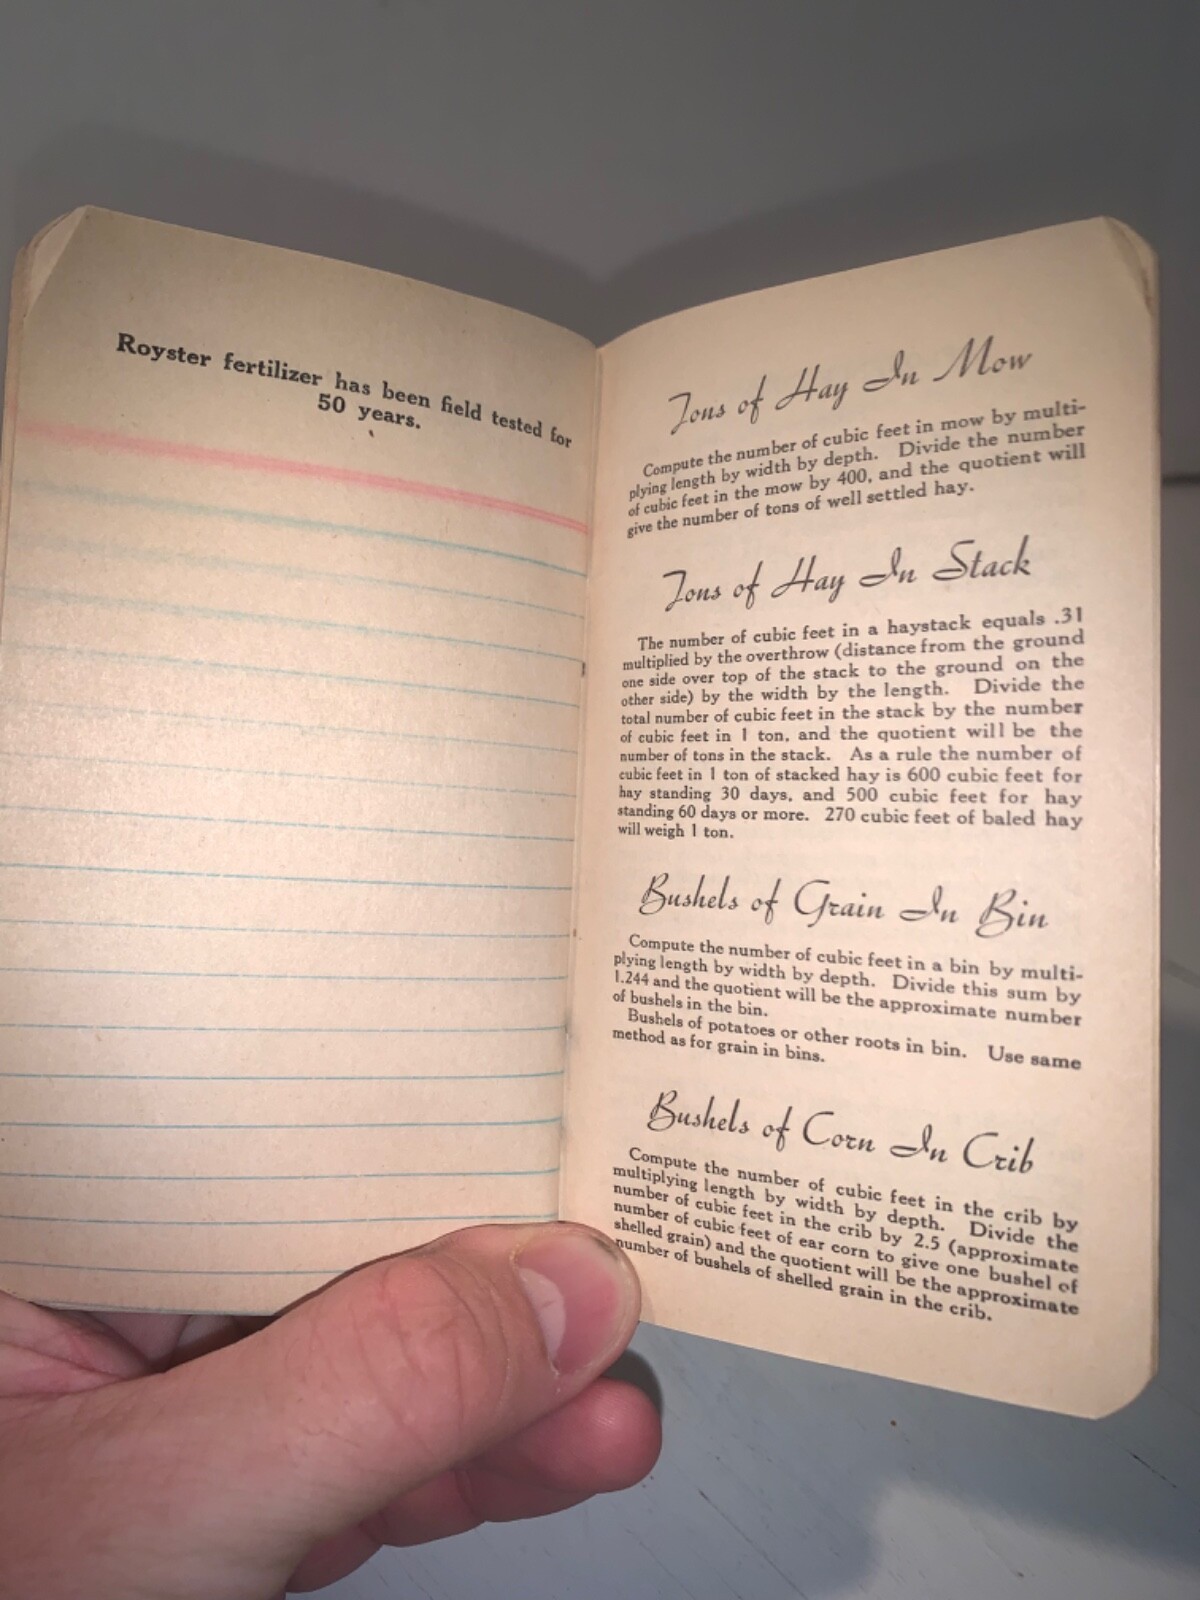 Royster fertilizer has been field tested for
50 years.
Tons of Hay In Mow
Compute the number of cubic feet in mow by multi-
plying length by width by depth. Divide the number
of cubic feet in the mow by 400, and the quotient will
give the number of tons of well settled hay.
Tons of Hay In Stack
The number of cubic feet in a haystack equals .31
multiplied by the overthrow (distance from the ground
one side over top of the stack to the ground on the
other side) by the width by the length. Divide the
total number of cubic feet in the stack by the number
of cubic feet in 1 ton, and the quotient will be the
number of tons in the stack. As a rule the number of
cubic feet in 1 ton of stacked hay is 600 cubic feet for
hay standing 30 days, and 500 cubic feet for hay
standing 60 days or more. 270 cubic feet of baled hay
will weigh 1 ton.
Bushels of Grain In Bin
Compute the number of cubic feet in a bin by multi-
plying length by width by depth. Divide this sum by
1.244 and the quotient will be the approximate number
of bushels in the bin.
Bushels of potatoes or other roots in bin. Use same
method as for grain in bins.
Bushels of Corn In Crib
Compute the number of cubic feet in the crib by
multiplying length by width by depth. Divide the
number of cubic feet in the crib by 2.5 (approximate
number of cubic feet of ear corn to give one bushel of
shelled grain) and the quotient will be the approximate
number of bushels of shelled grain in the crib.